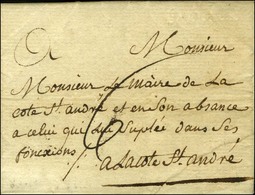 A Monsieur
Monsieur le Maire de La
cote St. andré et en Son absance
a celui qui lui Suplée dans Ses
fonctions
6
a La cote St. andré